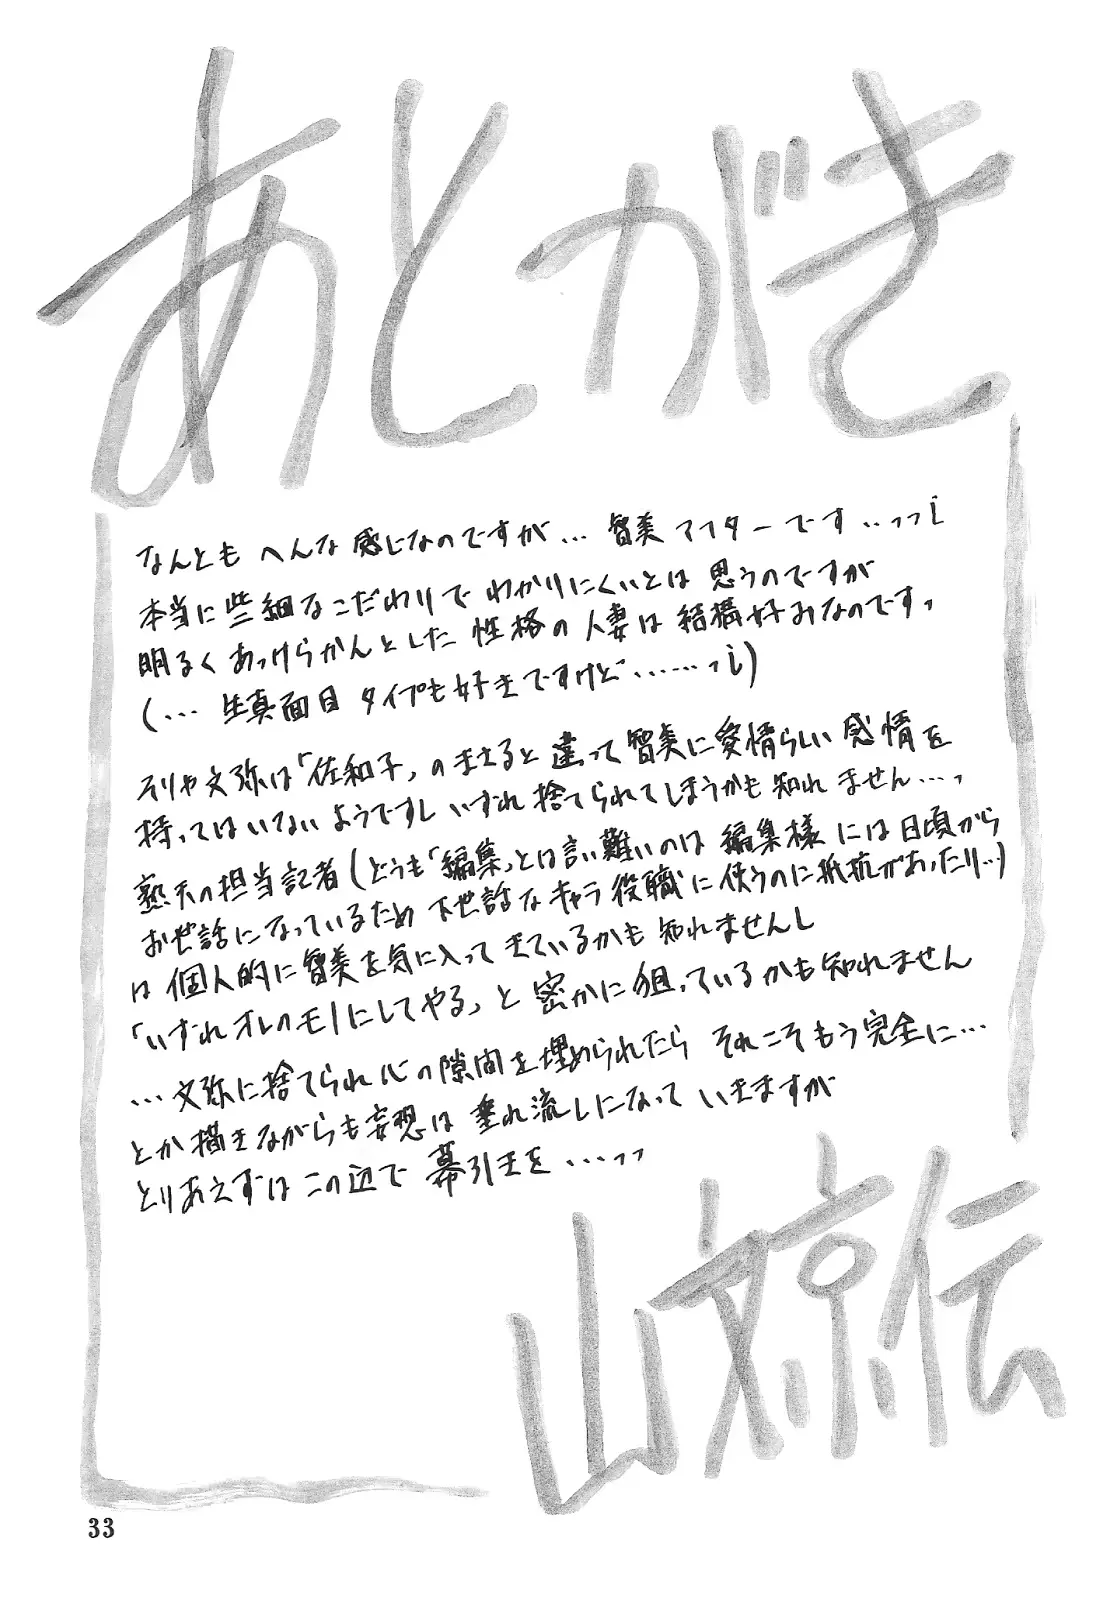 あとがき
なんとも へんな 感じなのですが… 智美 アフターです‥っっ！
本当に 些細な こだわりで わかりにくいとは 思うのですが
明るく あっけらかんとした 性格の 人妻は 結構好みなのです、
(… 生真面目 タイプも好きですけど……っ！)
そりゃ文弥は「佐和子」のまさると 違って 智美に愛情らしい 感情を
持ってはいないようですし いずれ 捨てられてしまうかも 知れません…、
熟天の担当記者(どうも「編集」とは言い難いのは 編集様 には日頃から
お世話になっているため 下世話な キャラ 役職に 使うのに抵抗があったり…)
は 個人的に 智美を気に入って きているかも 知れませんし
「いずれオレのモノにしてやる」と 密かに狙っているかも知れません
… 文弥に捨てられ 心の隙間を埋められたら それこそもう完全に…
とか描きながらも妄想は 垂れ流しになって いきますが
とりあえずはこの辺で 幕引きを …っっ
山文京伝
33